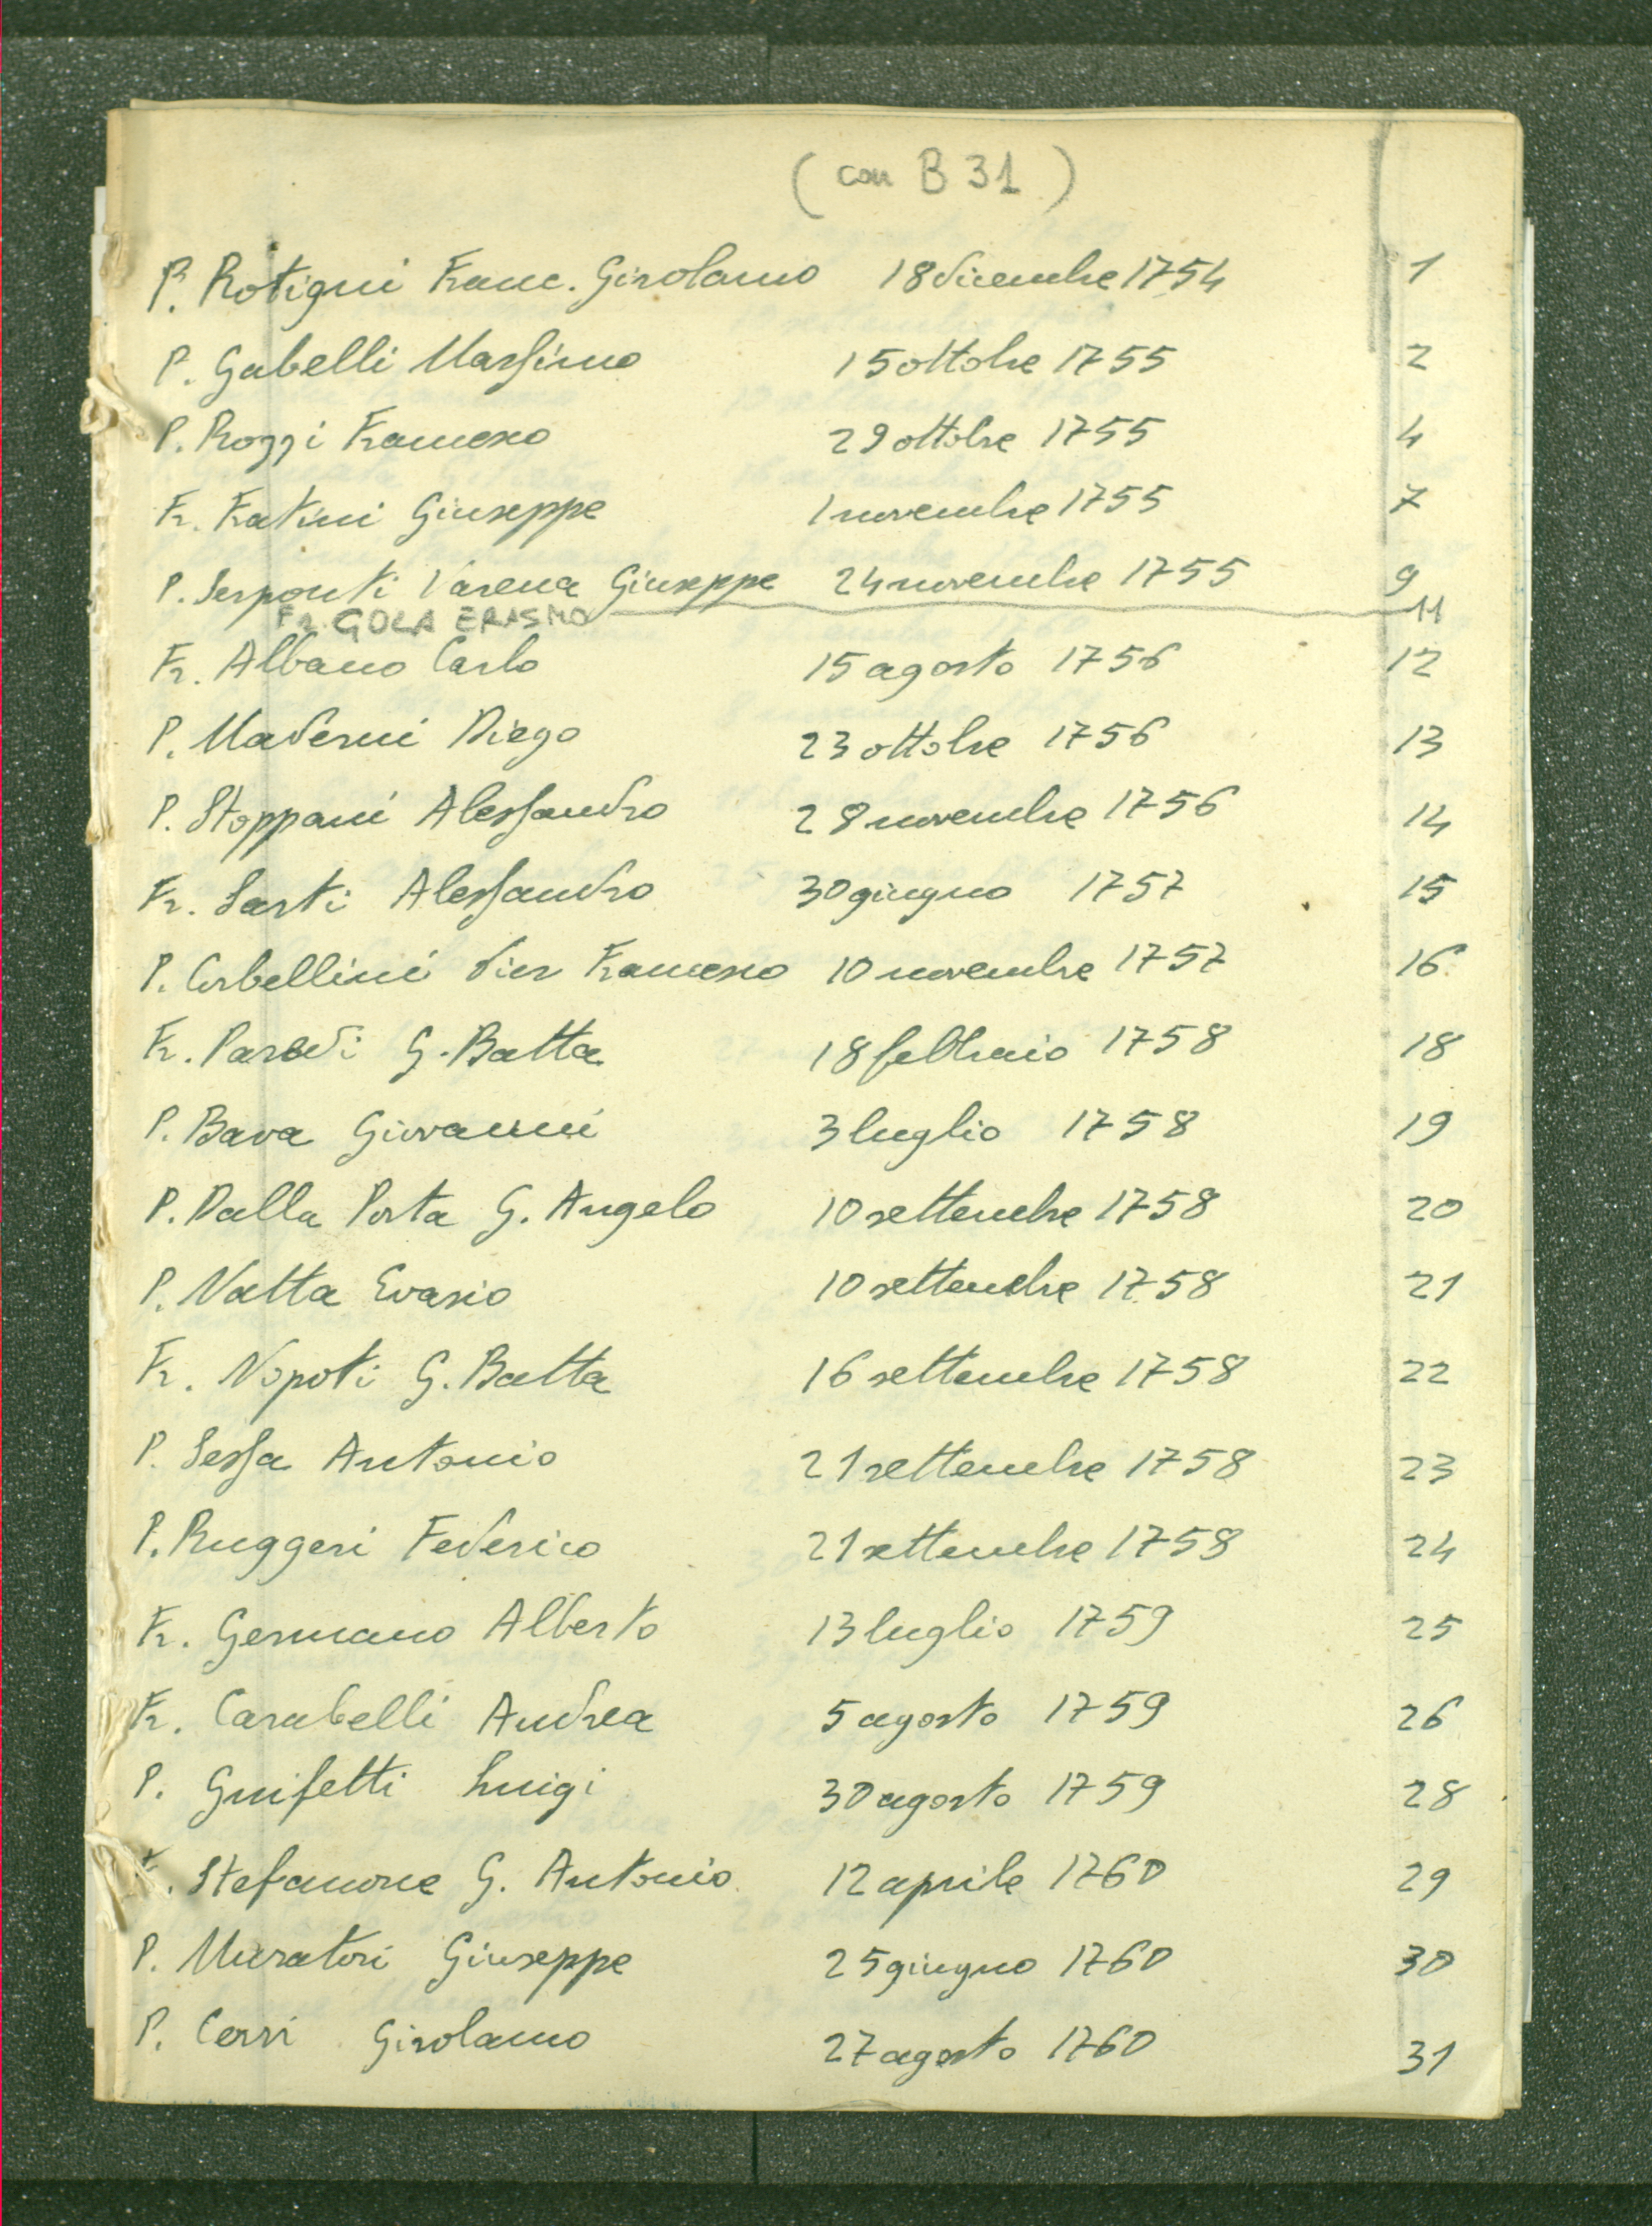 (con B 31)
P. Rotigni Franc. Girolamo 18 dicembre 1754 1
P. Gabelli Massimo 15 ottobre 1755 2
P. Rozzi Francesco 29 ottobre 1755 4
Fr. Fratini Giuseppe 1 novembre 1755 7
P. Serponti Varena Giuseppe 24 novembre 1755 9
Fr. GOLA ERASMO 11
Fr. Albano Carlo 15 agosto 1756 12
P. Maderni Diego 23 ottobre 1756 13
P. Stoppani Alessandro 28 novembre 1756 14
Fr. Sarti Alessandro 30 giugno 1757 15
P. Corbellini Pier Francesco 10 novembre 1757 16
Fr. Parodi G. Batta 18 febbraio 1758 18
P. Bava Giovanni 3 luglio 1758 19
P. Dalla Porta G. Angelo 10 settembre 1758 20
P. Natta Evasio 10 settembre 1758 21
Fr. Nopoti G. Batta 16 settembre 1758 22
P. Sessa Antonio 21 settembre 1758 23
P. Ruggeri Federico 21 settembre 1758 24
Fr. Germano Alberto 13 luglio 1759 25
Fr. Carabelli Andrea 5 agosto 1759 26
P. Gnifetti Luigi 30 agosto 1759 28
Stefanone G. Antonio 12 aprile 1760 29
P. Muratori Giuseppe 25 giugno 1760 30
P. Cerri Girolamo 27 agosto 1760 31